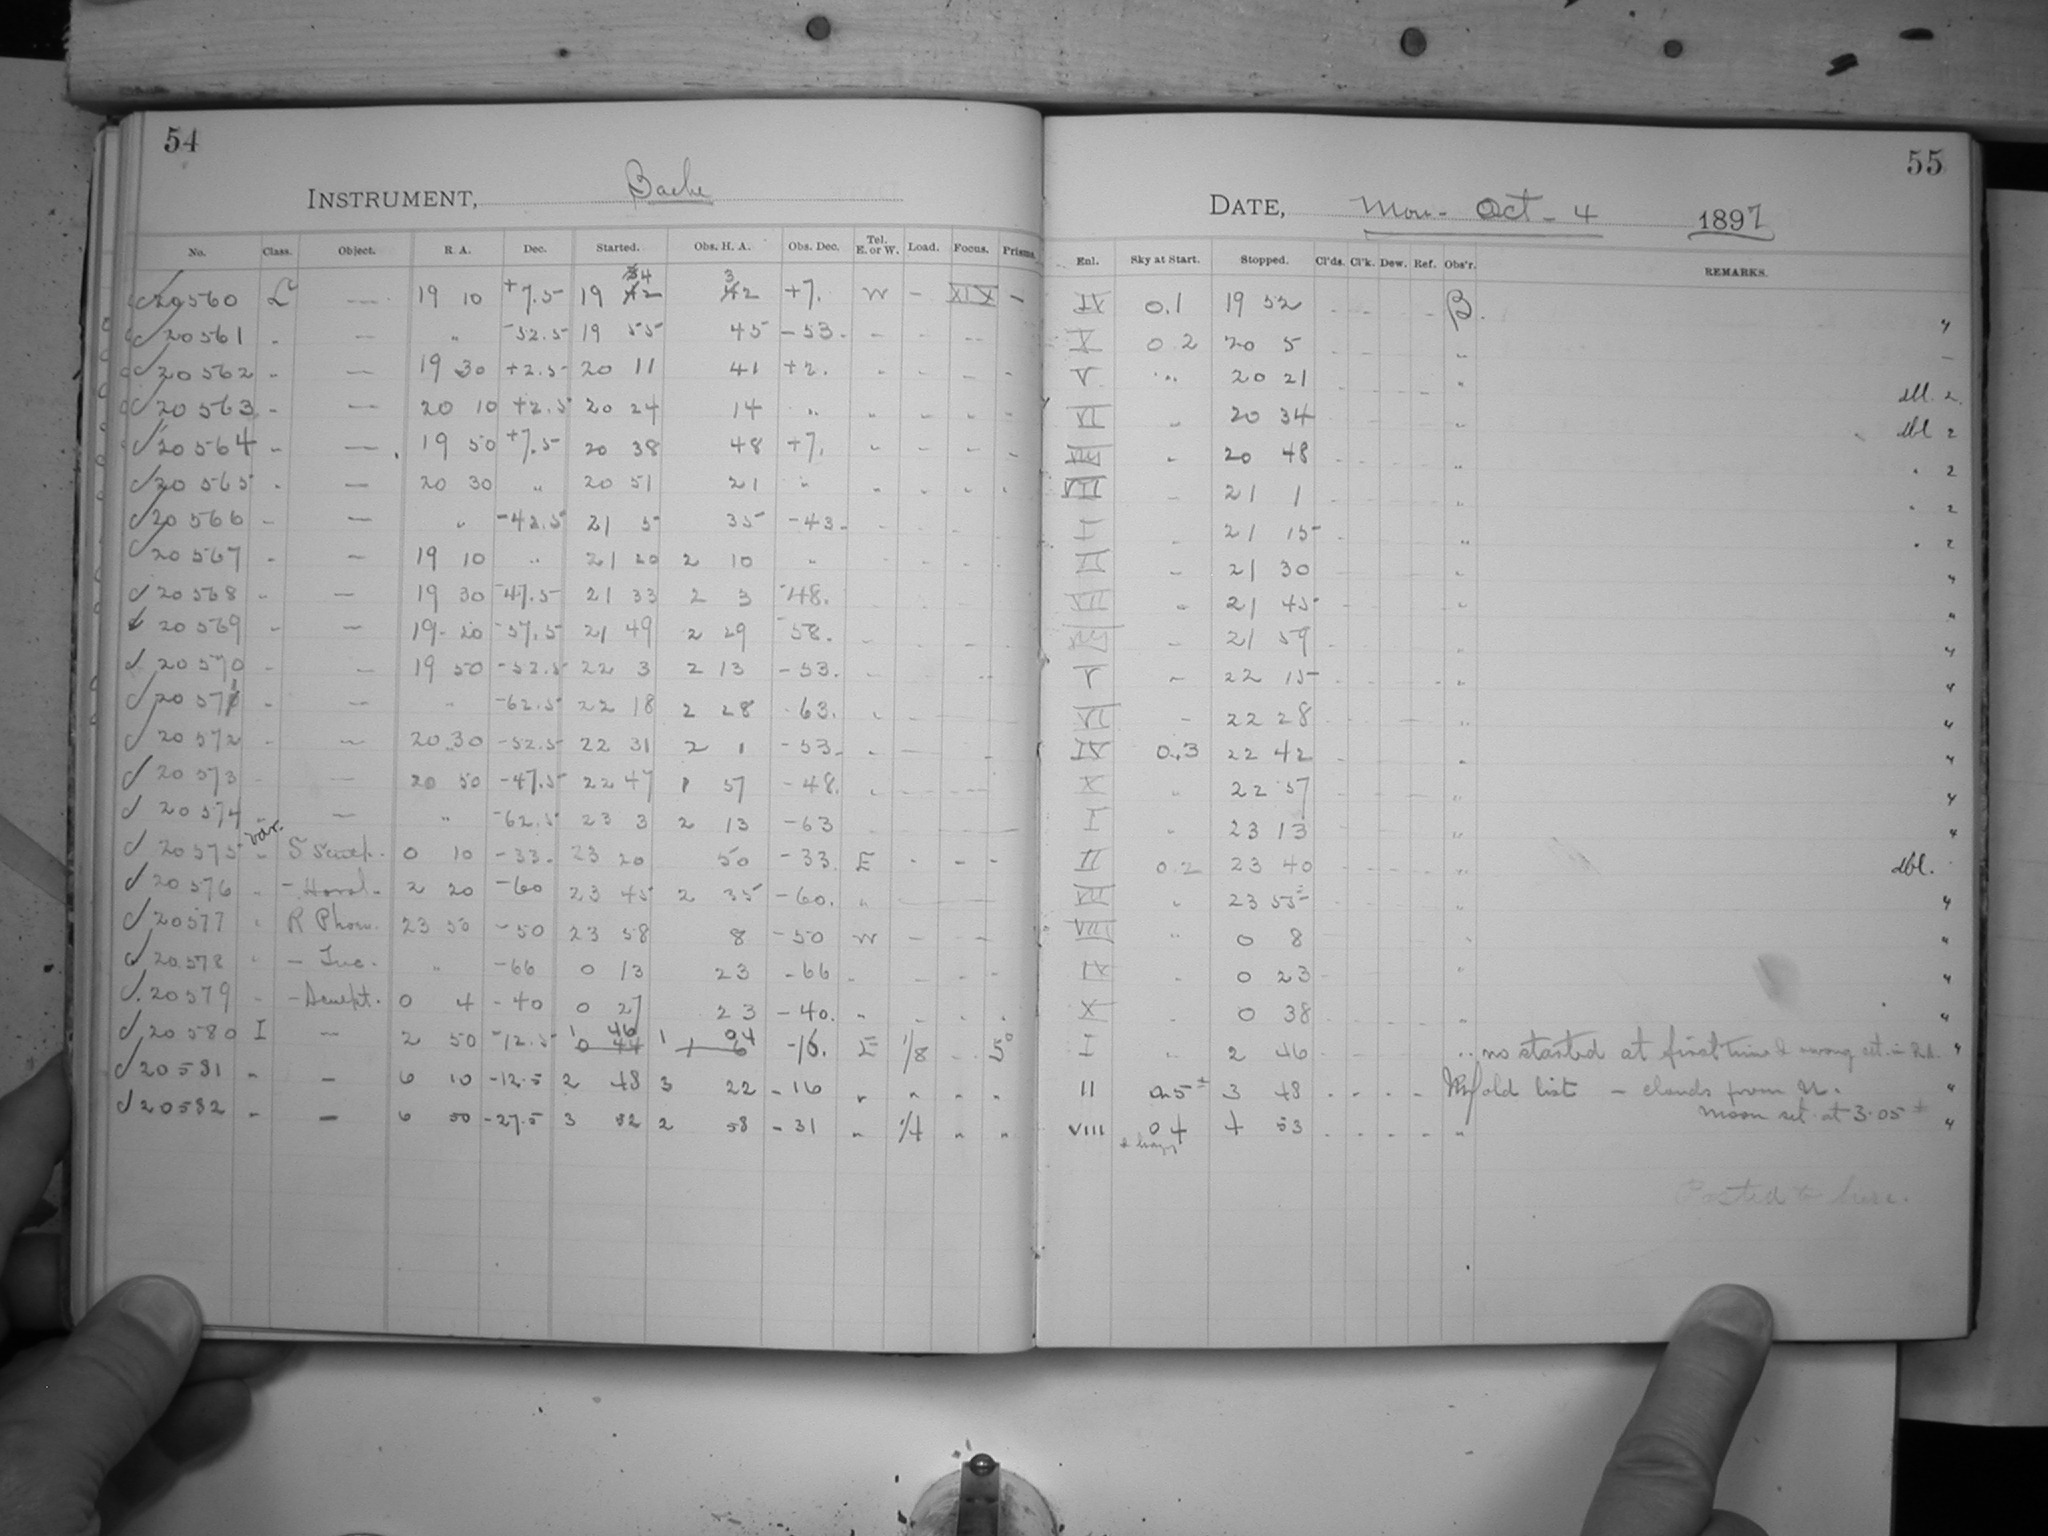 54
INSTRUMENT, Bache
No. Class. Object. R. A. Dec. Started. Obs. H. A. Obs. Dec. Tel. E. or W. Load. Focus. Prisms.
20560 L — 19 10 +7.5 19 42 +7. W - XIX -
20561 - — " -52.5 19 55 45 -53.
20562 - — 19 30 +2.5 20 11 41 +2.
20563 - — 20 10 +2.5 20 24 14 "
20564 - — 19 50 +7.5 20 38 48 +7.
20565 - — 20 30 " 20 51 21 "
20566 - — " -42.5 21 5 35 -43.
20567 - — 19 10 " 21 20 2 10 "
20568 - — 19 30 -47.5 21 33 2 3 -48.
20569 - — 19 20 -57.5 21 49 2 29 -58.
20570 - — 19 50 -52.5 22 3 2 13 -53.
20571 - — " -62.5 22 18 2 28 -63.
20572 - — 20 30 -52.5 22 31 2 1 -53.
20573 - — 20 50 -47.5 22 47 1 57 -48.
20574 - — " -62.5 23 3 2 13 -63
20575 var. S Sculp. 0 10 -33. 23 20 50 -33 E - - -
20576 " - Horol. 2 20 -60 23 45 2 35 -60.
20577 " R Phoen. 23 50 -50 23 58 8 -50 W
20578 " - Tuc. " -66 0 13 23 -66
20579 " - Sculpt. 0 4 -40 0 27 23 -40.
20580 I — 2 50 -12.5 1 46 1 04 -16. E 1/8 - 5°
20581 " — 6 10 -12.5 2 48 3 22 -16 " " " "
20582 " — 6 50 -27.5 3 52 2 58 -31 " 1/4 " "
55
DATE, Mon. Oct. 4 1897
Enl. Sky at Start. Stopped. Cl'ds. Cl'k. Dew. Ref. Obs'r. REMARKS.
IX 0.1 19 52 B. "
X 0 2 20 5 "
V " 20 21 " dbl. 2.
VI " 20 34 " dbl 2
20 48 " " 2
VIII " 21 1 " " 2
I " 21 15 " " 2
II " 21 30 " "
VII " 21 45 " "
21 59 " "
V " 22 15 " "
VI " 22 28 " "
IX 0.3 22 42 " "
X " 22 57 " "
I " 23 13 " "
II 0.2 23 40 " dbl.
VII " 23 55± " "
VIII " 0 8 " "
IX " 0 23 " "
X " 0 38 " "
I " 2 46 " no started at first time & wrong set. in R.A. "
II 0.5± 3 48 old list - clouds from N. "
moon set at 3.05±
VIII 0 4 4 53 " "
Posted to here.